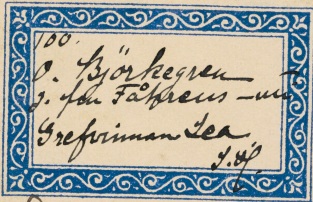 100.
O. Björkegren
f. fru Fåhreus - mit
Grefvinnan Lea
S. H.